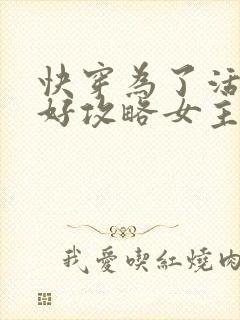 快穿為了活
好攻略女主
我愛喫紅燒肉